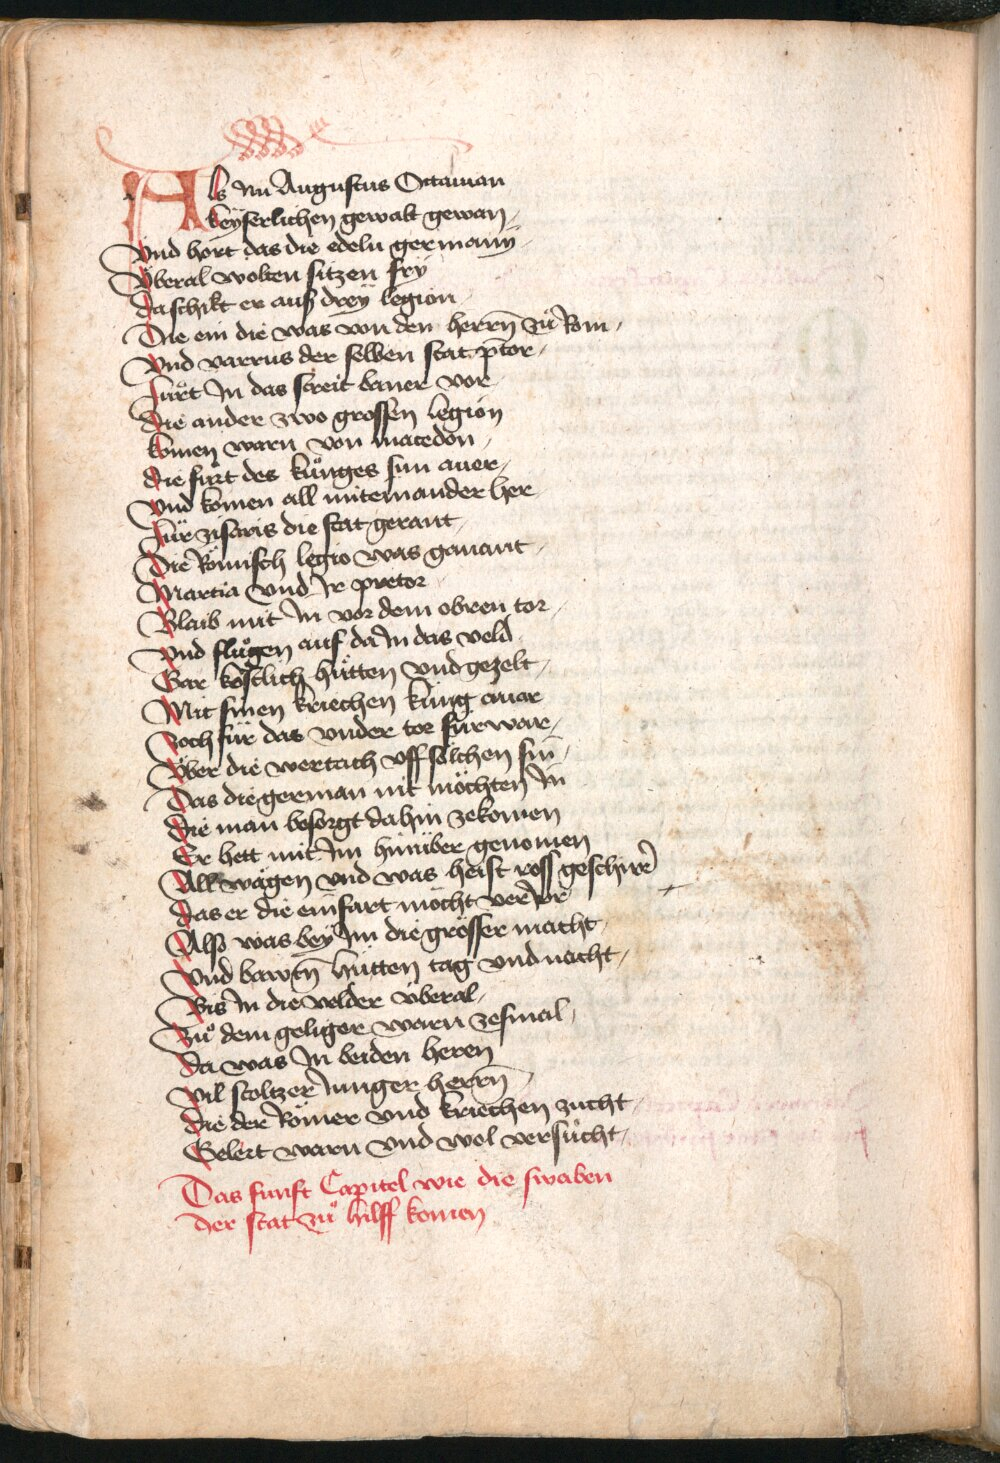 Als nu Augustus Octauian
keÿserlichen gewalt gewan /
Vnd hort das die edeln germanÿ /
Vberal wolten sitzen frÿ
da schikt er auß dreÿ legion /
Die ein die was von den herrn̄ zů Rom /
Vnd varrus der selben stat p̄tor /
Fůrt In das streit baner vor
die ander zwo grossen legion
komen warn von macedon /
die fůrt des kůnges sun auer /
vnd komen all miteinander her
Fůr zisaris die stat gerant /
Die Römisch legio was genant /
Martia vnd Ir pretor
Blaib mit In vor dem obren tor /
vnd slůgen auf da In das veld
Gar köstlich hůtten vnd gezelt /
Mit sinen kriechen kůng auar
Zoch fůr das vnder tor fůrwar /
Vber die wertach vff sölchen sin /
Das die german nit möchten In
die man besorgt dahin zekomen
Er hett mit Im hinůber genomen
All wägen vnd was heist ross geschirr
das er die einfart möcht veriʳr
Alß was beÿ Im die grösser macht /
Vnd bawtn̄ hůtten tag vnd nacht /
Bis In die velder vberal /
Zů dem geliger warn zesmal /
da was In beiden heren
vil stoltzer Iunger herrn̄ /
die der Römer vnd kriechen zucht /
Gelert warn vnd wol versůcht /
Das funft Capitel wie die swaben
der stat zů hilff komen